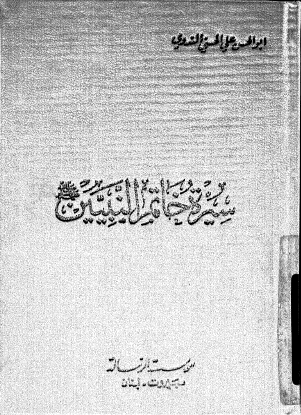 ابو الحسن علي الحسني الندوي
سيرة خاتم النبيين ﷺ
مؤسسة الرسالة
بيروت - لبنان